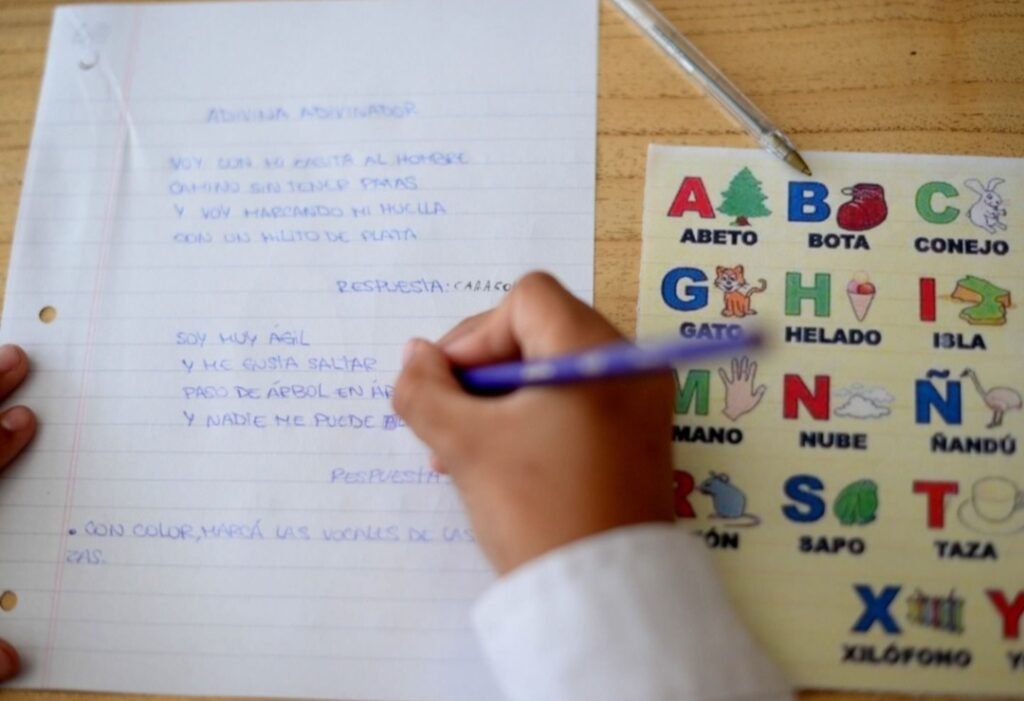 ADIVINA ADIVINADOR
VOY CON MI CASITA AL HOMBRO
CAMINO SIN TENER PATAS
Y VOY MARCANDO MI HUELLA
CON UN HILITO DE PLATA
RESPUESTA: CARACO
SOY MUY ÁGIL
Y ME GUSTA SALTAR
PASO DE ÁRBOL EN ÁR
Y NADIE ME PUEDE AL
RESPUESTA
• CON COLOR, MARCÁ LAS VOCALES DE LAS
ZAS.
A B C
ABETO BOTA CONEJO
G H I
GATO HELADO ISLA
M N Ñ
MANO NUBE ÑANDÚ
R S T
TÓN SAPO TAZA
X Y
XILÓFONO Y